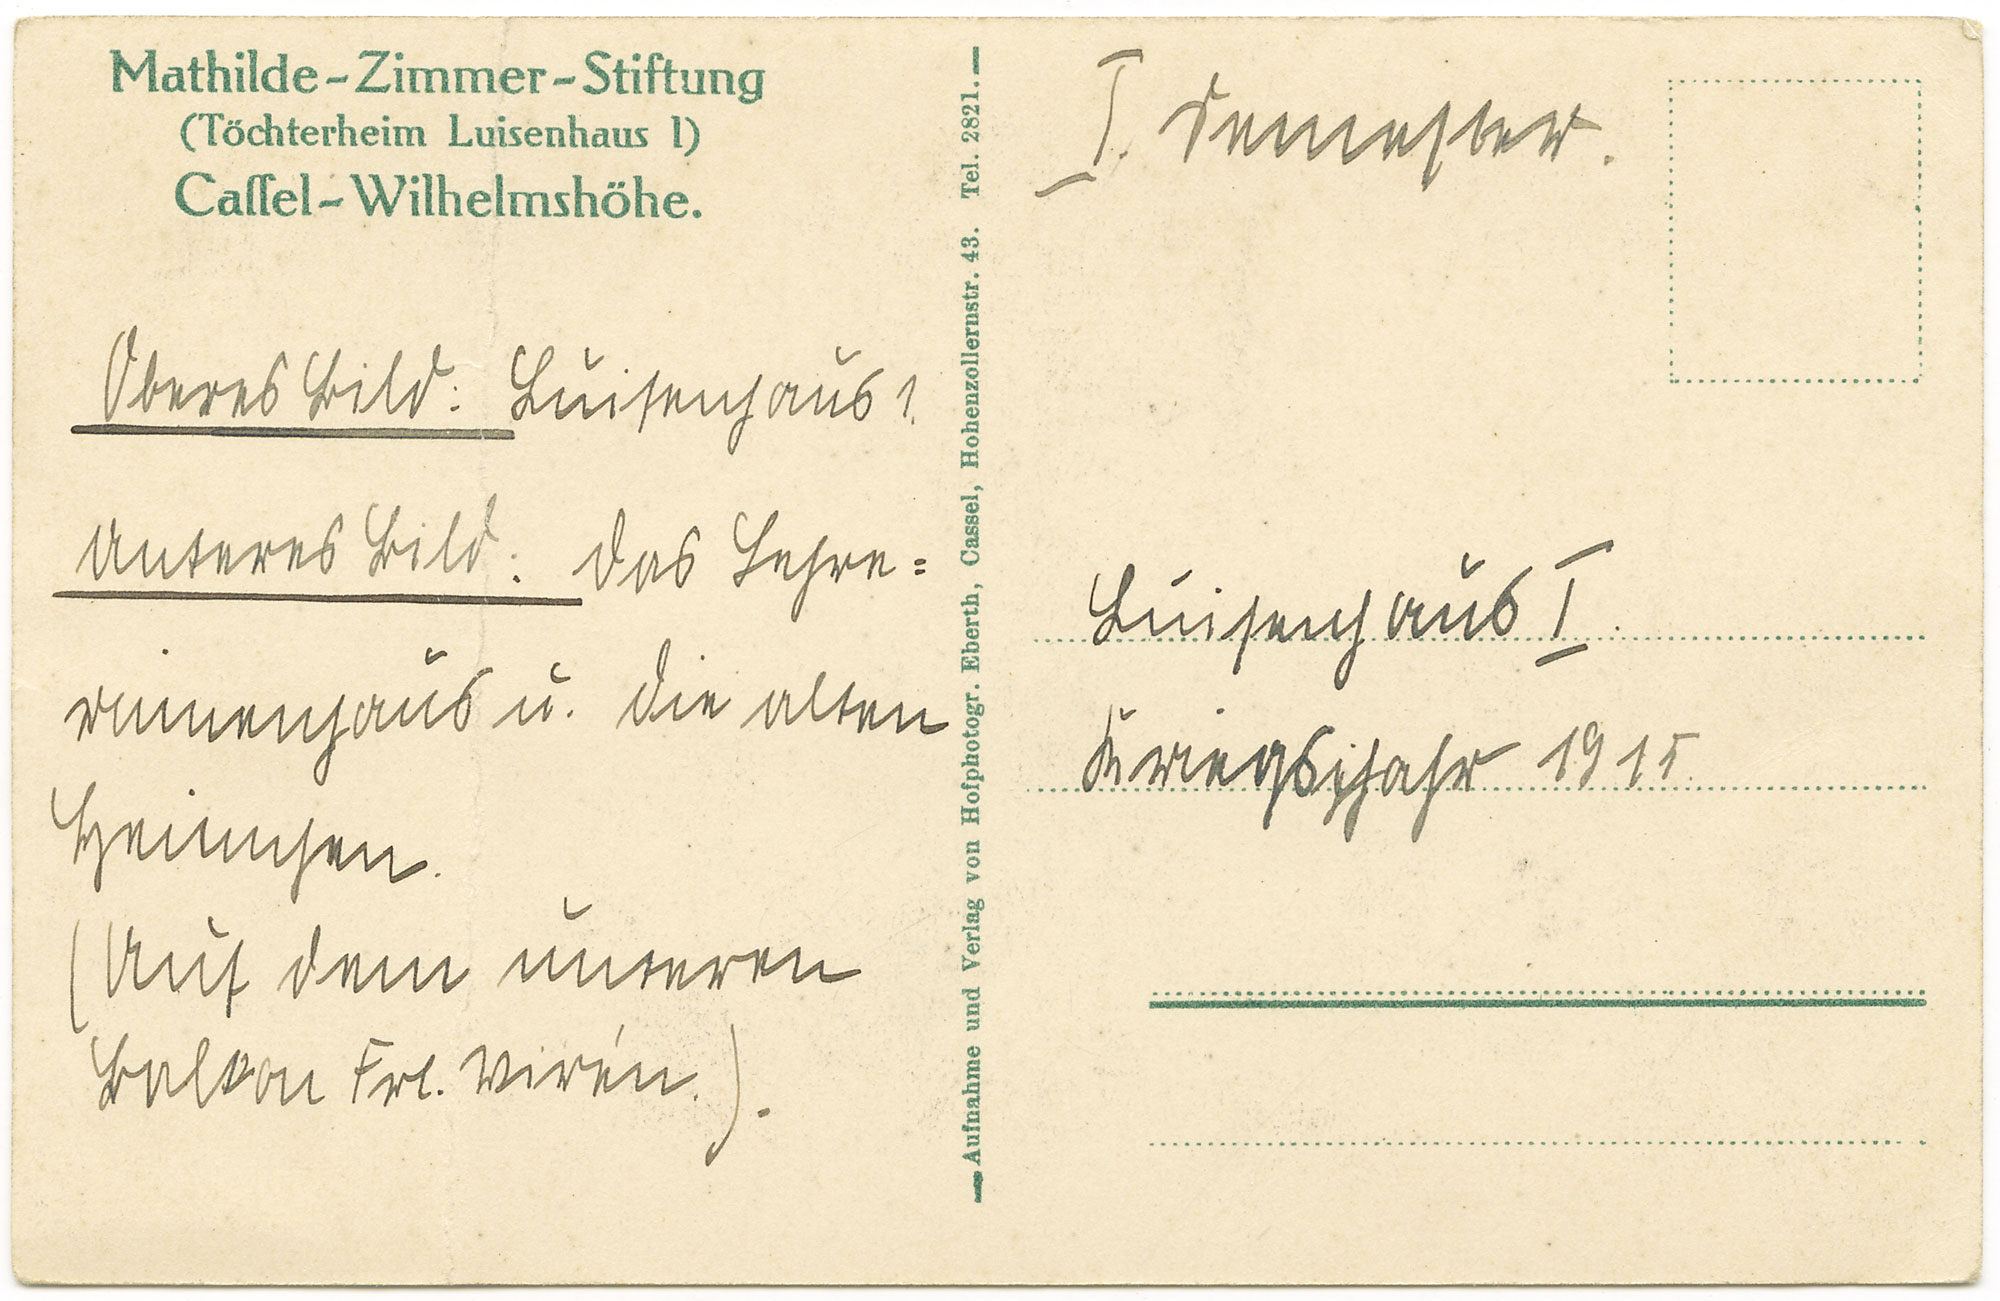 Mathilde-Zimmer-Stiftung
(Töchterheim Luisenhaus I)
Caſſel-Wilhelmshöhe.
Oberes Bild: Luisenhaus 1.
Unteres Bild: das Lehre=
rinnenhaus u. die alten
Heimchen.
(Auf dem unteren
Balkon Frl. Virén.).
Aufnahme und Verlag von Hofphotogr. Eberth, Cassel, Hohenzollernstr. 43. Tel. 2821.
I. Semester.
Luisenhaus I.
Kriegsjahr 1915.